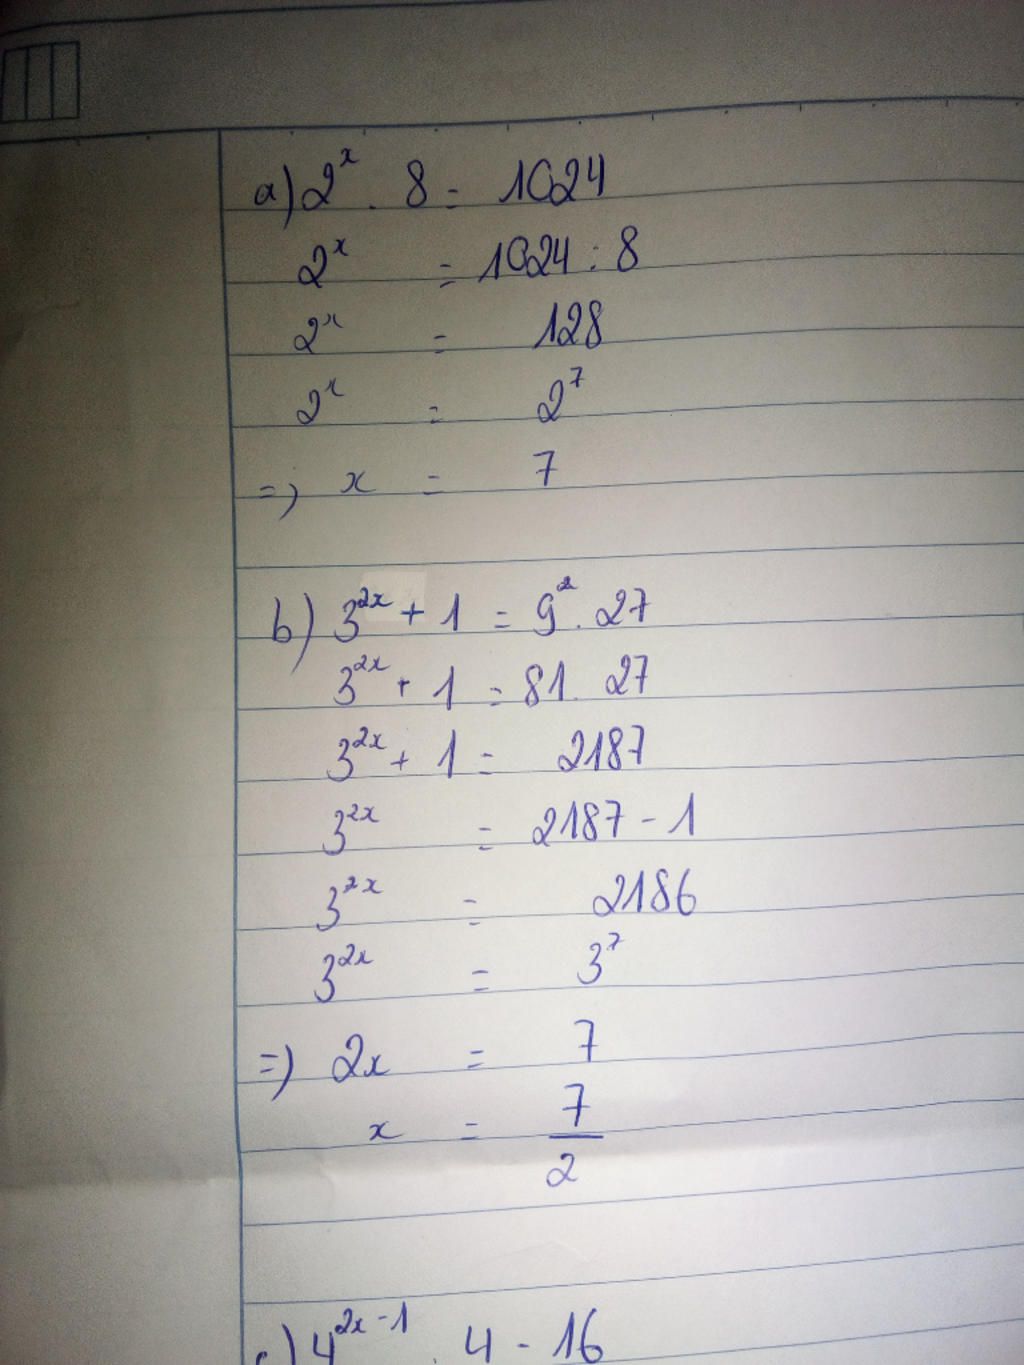 a) 2^x . 8 = 1024
2^x = 1024 : 8
2^x = 128
2^x = 2^7
=) x = 7
b) 3^2x + 1 = 9^2 . 27
3^2x + 1 = 81 . 27
3^2x + 1 = 2187
3^2x = 2187 - 1
3^2x = 2186
3^2x = 3^7
=) 2x = 7
x = 7/2
c) 4^2x-1 . 4 - 16